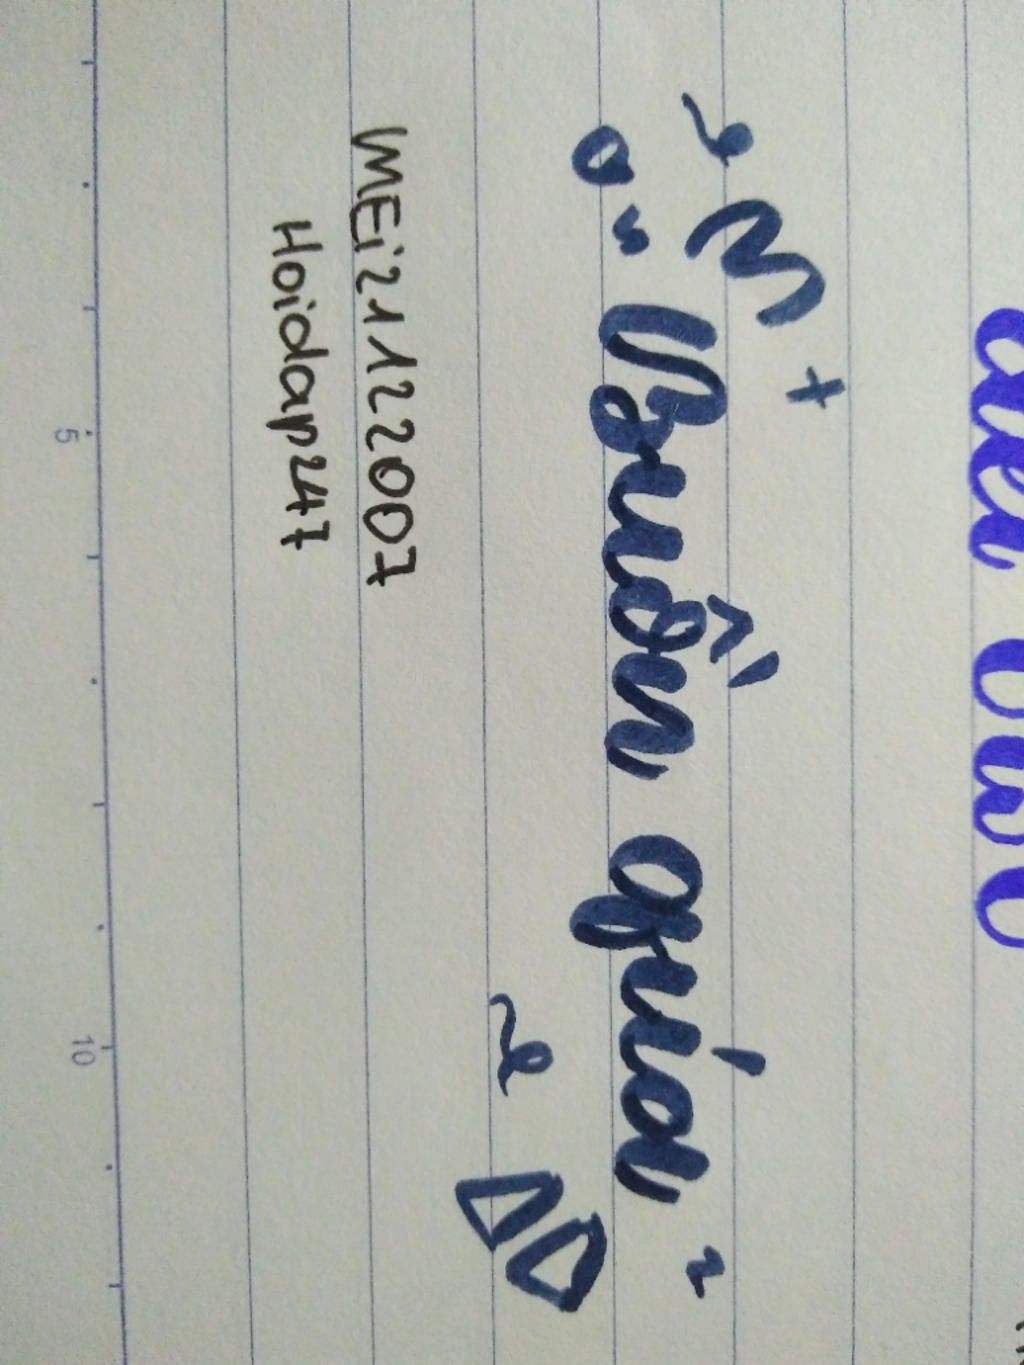 Buồn quá
MEi21122007
Hoidap247
5
10